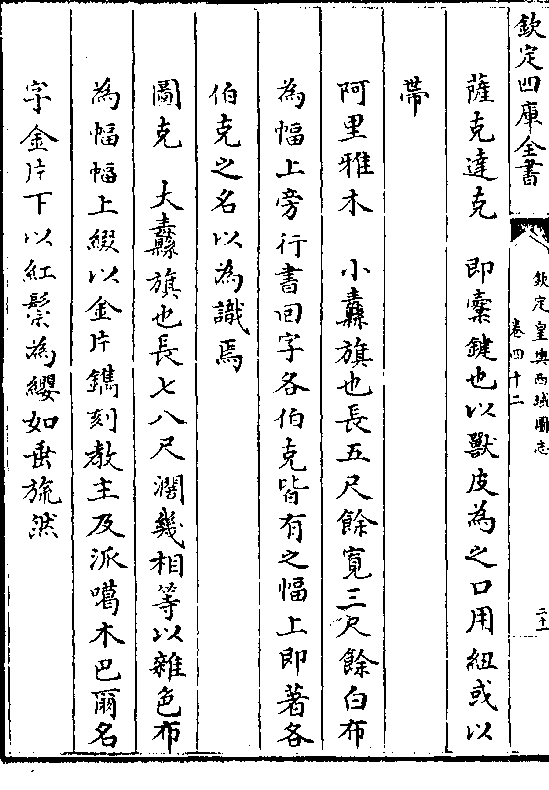 欽定四庫全書
欽定皇輿西域圖志
卷四十二
二十一
薩克達克　即櫜鞬也以獸皮為之口用紐或以
帶
阿里雅木　小纛旗也長五尺餘寛三尺餘白布
為幅上旁行書回字各伯克皆有之幅上即著各
伯克之名以為識焉
圖克　大纛旗也長七八尺濶幾相等以雜色布
為幅幅上綴以金片鐫刻教主及派噶木巴爾名
字金片下以紅鬃為纓如垂旒然